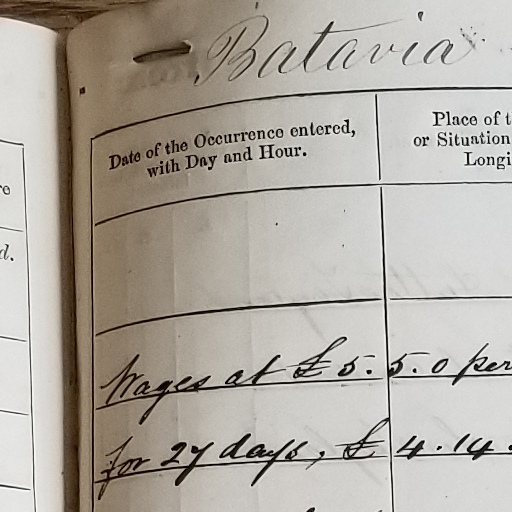 Batavia
Date of the Occurrence entered,
with Day and Hour.
Place of t
or Situation
Longi
re
d.
Wages at £5.5.0 per
for 27 days, £4.14.